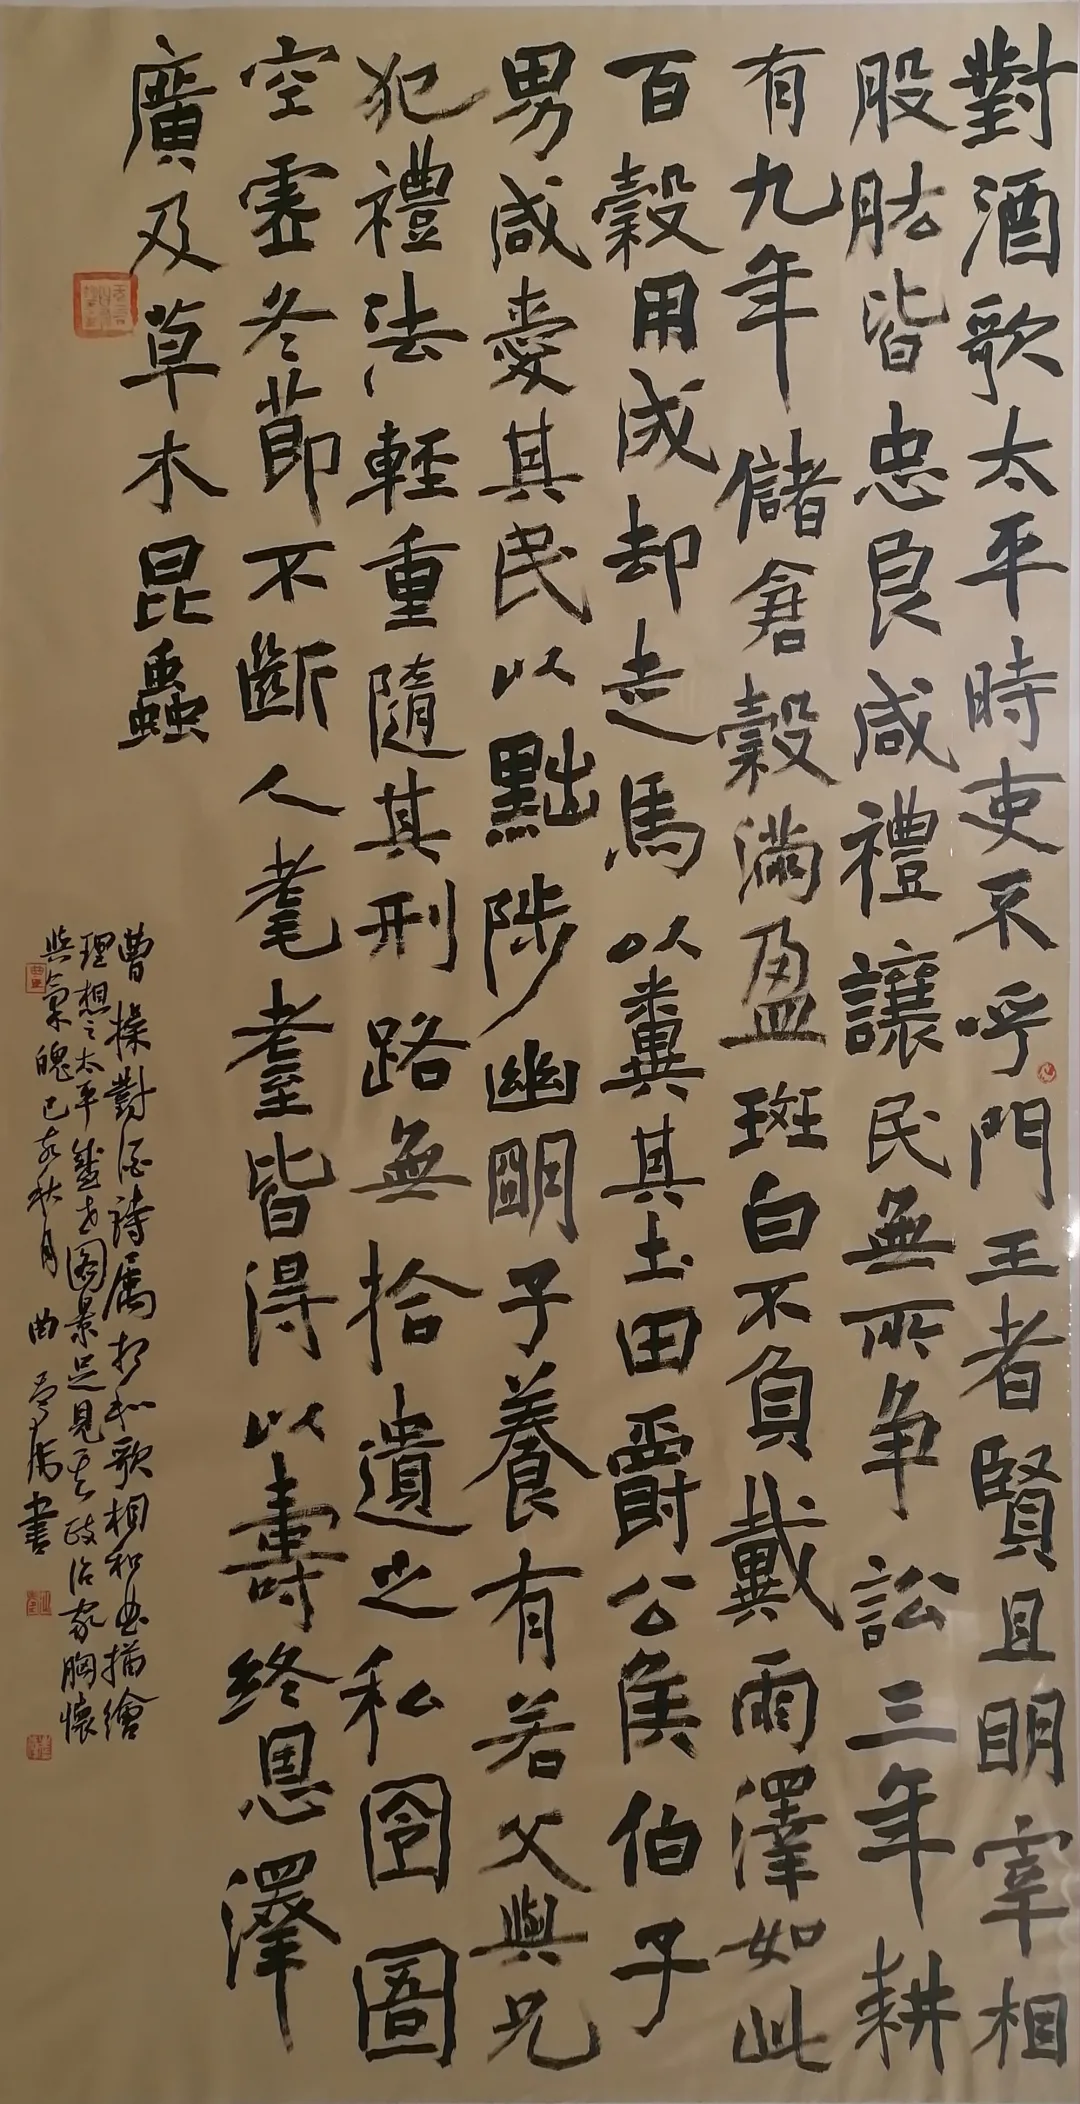 對酒歌太平時吏不呼門王者賢且明宰相
股肱皆忠良咸禮讓民無所争訟三年耕
有九年儲倉穀滿盈斑白不負戴雨澤如此
百穀用成却走馬以糞其土田爵公侯伯子
男咸愛其民以黜陟幽明子養有若父與兄
犯禮法輕重隨其刑路無拾遺之私囹圄
空虛冬節不斷人耄耋皆得以壽終恩澤
廣及草木昆蟲
曹操對酒詩屬相和歌相和曲描繪
理想之太平盛世图景足見其政治家胸懷
與氣魄己亥秋月曲 書